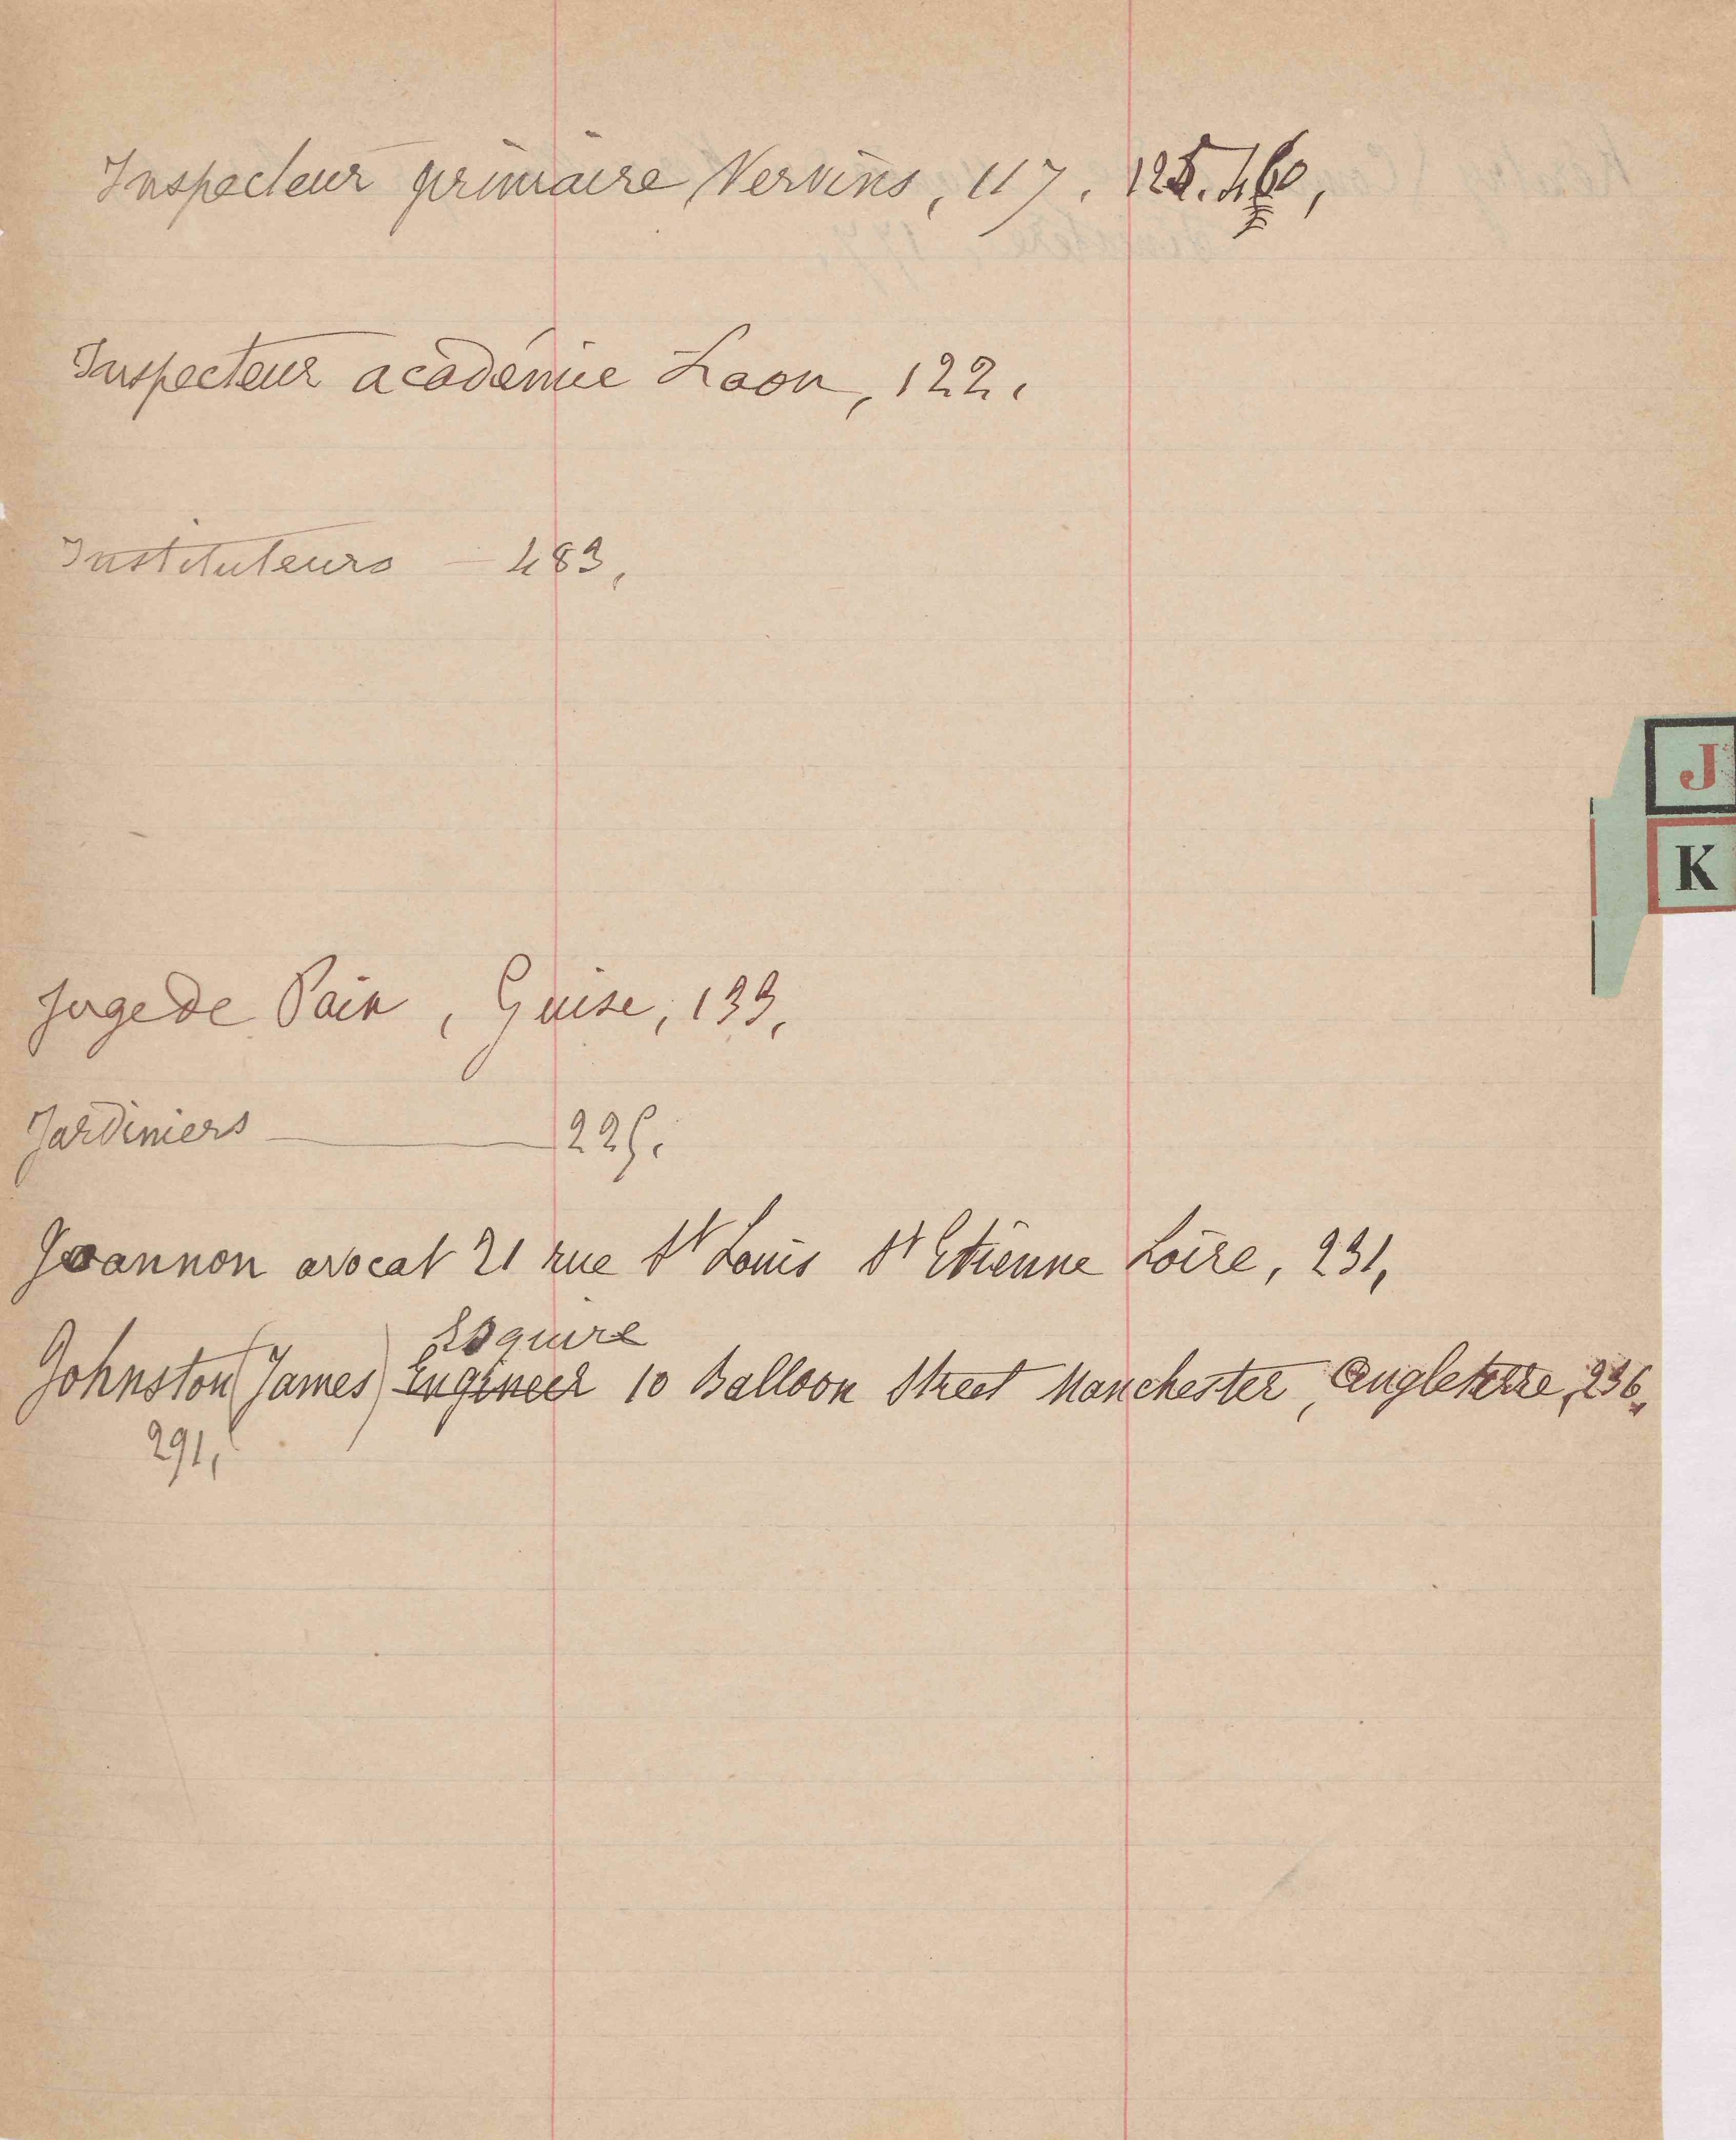 Inspecteur primaire Vervins, 117. 125. 460,
Inspecteur académie Laon, 122.
Instituteurs — 483,
J
K
Juge de Paix, Guise, 133,
Jardiniers — 225.
Joannon avocat 21 rue St Louis St Etienne Loire, 231,
Esquire
Johnston (James) Engineer 10 Balloon Street Manchester, Angleterre, 236,
291,